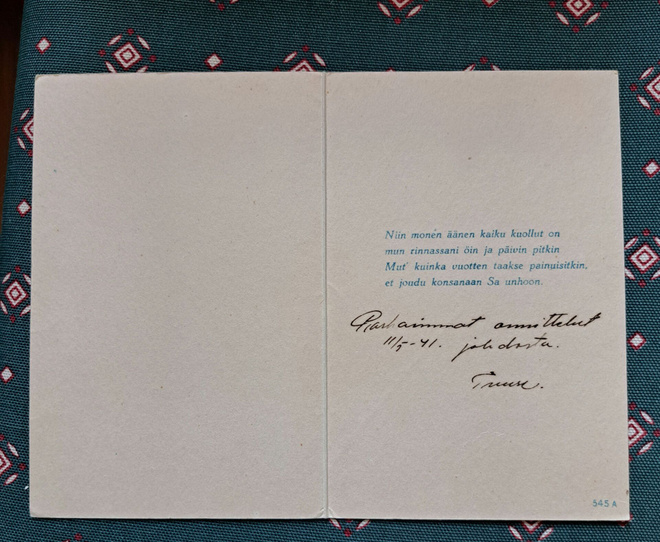 Niin monen äänen kaiku kuollut on
mun rinnassani öin ja päivin pitkin
Mut' kuinka vuotten taakse painuisitkin,
et joudu konsanaan Sa unhoon.
Parhaimmat onnittelut
11/5-41. johdosta.
Tuure.
545 A